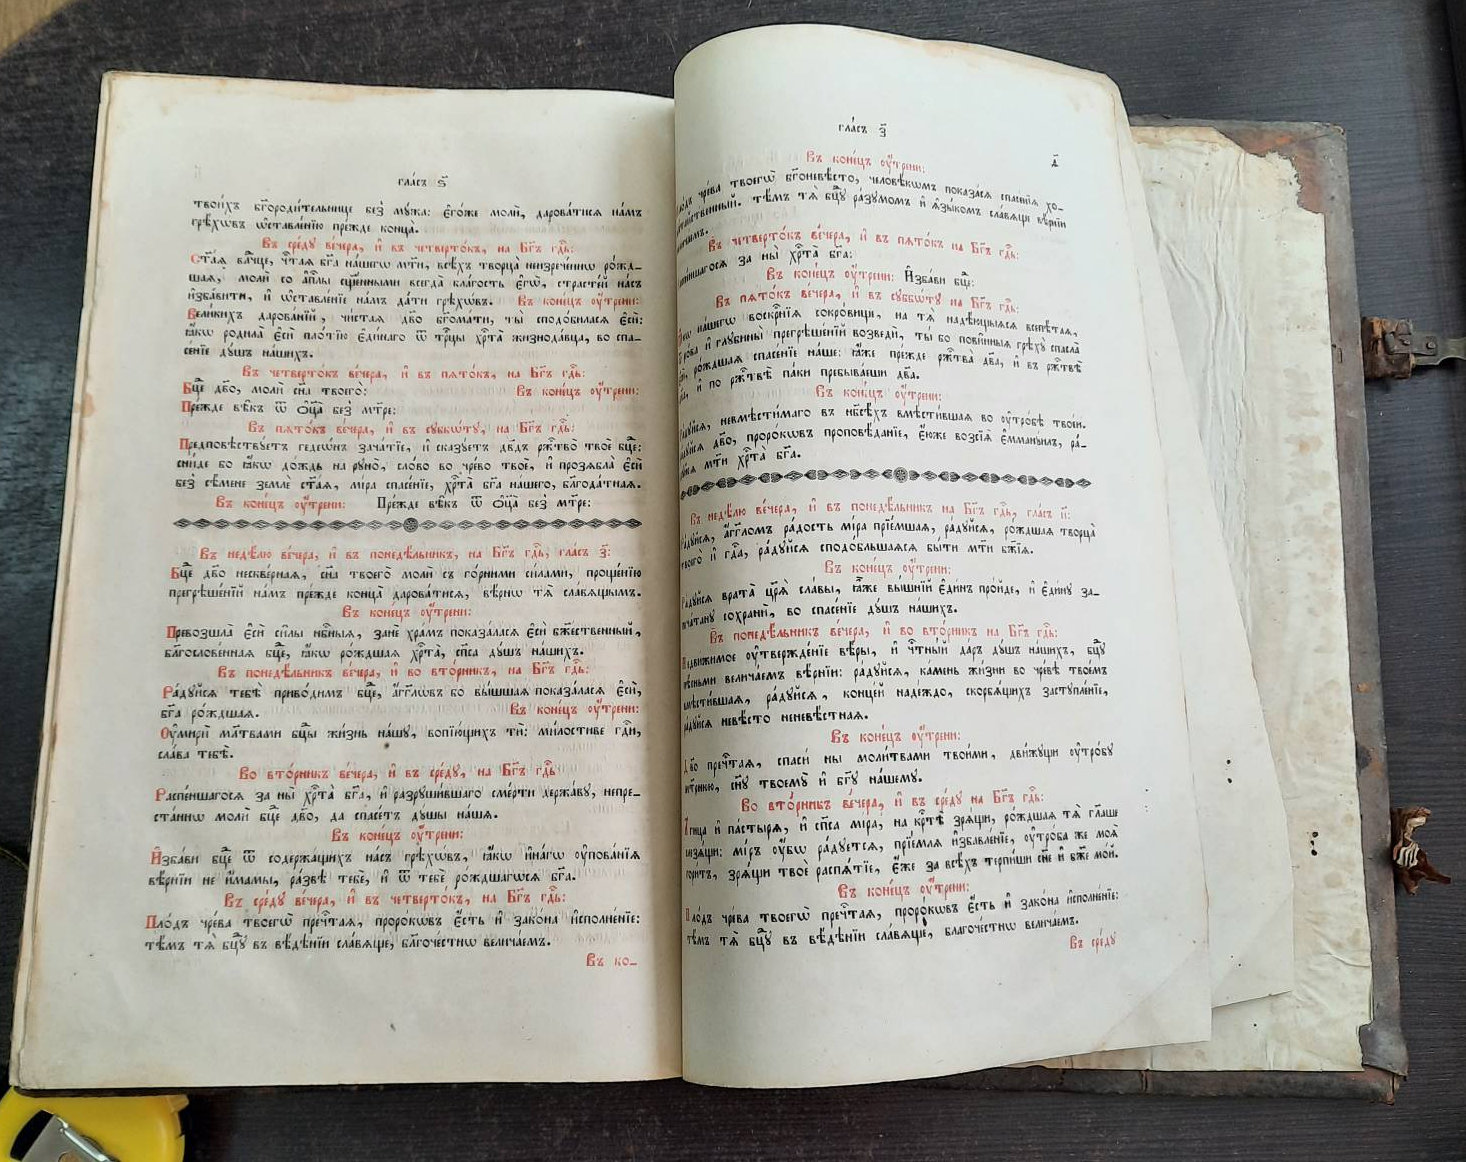 гла́съ ѕ҃
твои́хъ бг҃ороди́тельнице без̾ мꙋ́жа: є҆го́же молѝ, дарова́тисѧ на́мъ
грѣхѡ́въ ѡ҆ставле́нїю пре́жде конца̀.
Въ сре́дꙋ ве́чера, и҆ въ четверто́къ, на Бг҃ъ гдⷭ҇ь:
Ст҃а́ѧ влⷣчце, чтⷭ҇аѧ бг҃а на́шегѡ мт҃и, всѣ́хъ творца̀ неизрече́ннѡ ро́жд-
шаѧ, молѝ со а҆пⷭ҇лы сщ҃е́нными всегда̀ бла́гость є҆гѡ̀, страсте́й на́съ
и҆зба́вити, и҆ ѡ҆ставле́нїе на́мъ да́ти грѣхѡ́въ. Въ коне́цъ ᲂу҆́трени:
Вели́кихъ дарова́нїй, чи́стаѧ дв҃о бг҃ома́ти, ты̀ сподо́биласѧ є҆сѝ:
ꙗ҆́кѡ родила̀ є҆сѝ пло́тїю є҆ди́наго ѿ трⷪ҇цы хрⷭ҇та̀ жизнода́вца, во спа-
се́нїе дꙋ́шъ на́шихъ.
Въ четверто́къ ве́чера, и҆ въ пѧто́къ, на Бг҃ъ гдⷭ҇ь:
Бцⷣе дв҃о, молѝ сн҃а твоего̀: Въ коне́цъ ᲂу҆́трени:
Пре́жде вѣ̑къ ѿ ѻ҆ц҃а̀ без̾ мт҃ре:
Въ пѧто́къ ве́чера, и҆ въ сꙋббѡ́тꙋ, на Бг҃ъ гдⷭ҇ь:
Предповѣ́ствꙋетъ гедеѡ́нъ зача́тїе, и҆ ска́зꙋетъ дв҃дъ ржⷭ҇тво̀ твоѐ бцⷣе:
сни́де бо ꙗ҆́кѡ до́ждь на рꙋно̀, сло́во во чре́во твоѐ, и҆ прозѧбла̀ є҆сѝ
без̾ сѣ́мене землѐ ст҃а́ѧ, мі́ра спасе́нїе, хрⷭ҇та̀ бг҃а на́шего, бл҃года́тнаѧ.
Въ коне́цъ ᲂу҆́трени: Пре́жде вѣ̑къ ѿ ѻ҆ц҃а̀ без̾ мт҃ре:
Въ недѣ́лю ве́чера, и҆ въ понедѣ́льникъ, на Бг҃ъ гдⷭ҇ь, гла́съ з҃:
Бцⷣе дв҃о нескве́рнаѧ, сн҃а твоего̀ молѝ съ го́рними си́лами, проще́нїю
прегрѣше́нїй на́мъ пре́жде конца̀ дарова́тисѧ, вѣ́рнѡ тѧ̀ сла́вѧщымъ.
Въ коне́цъ ᲂу҆́трени:
Превозшла̀ є҆сѝ си̑лы нбⷭ҇ныѧ, занѐ хра́мъ показа́ласѧ є҆сѝ бж҃е́ственный,
бл҃гослове́ннаѧ бцⷣе, ꙗ҆́кѡ ро́ждшаѧ хрⷭ҇та̀, сп҃са дꙋ́шъ на́шихъ.
Въ понедѣ́льникъ ве́чера, и҆ во вто́рникъ, на Бг҃ъ гдⷭ҇ь:
Ра́дꙋйсѧ тебѣ̀ приво́димъ бцⷣе, а҆́гг҃лѡвъ бо вы́шшаѧ показа́ласѧ є҆сѝ,
бг҃а ро́ждшаѧ. Въ коне́цъ ᲂу҆́трени:
Оу҆мирѝ мл҃твами бцⷣы жи́знь на́шꙋ, вопїю́щихъ тѝ: ми́лостиве гдⷭ҇и,
сла́ва тебѣ̀.
Во вто́рникъ ве́чера, и҆ въ сре́дꙋ, на Бг҃ъ гдⷭ҇ь
Распе́ншагосѧ за ны̀ хрⷭ҇та̀ бг҃а, и҆ разрꙋши́вшаго сме́рти держа́вꙋ, непре-
ста́ннѡ молѝ бцⷣе дв҃о, да спасе́тъ дꙋ́шы на́шѧ.
Въ коне́цъ ᲂу҆́трени:
И҆зба́ви бцⷣе ѿ содержа́щихъ на́съ грѣхѡ́въ, ꙗ҆́кѡ и҆на́гѡ ᲂу҆пова́нїѧ
вѣ́рнїи не и҆́мамы, ра́звѣ тебѐ, и҆ ѿ тебѐ ро́ждшагѡсѧ бг҃а.
Въ сре́дꙋ ве́чера, и҆ въ четверто́къ, на Бг҃ъ гдⷭ҇ь:
Пло́дъ чре́ва твоегѡ̀ пречⷭ҇таѧ, проро́кѡвъ є҆́сть и҆ зако́на и҆сполне́нїе:
тѣ́мъ тѧ̀ бцⷣꙋ въ вѣ́дѣнїи сла́вѧще, бл҃гоче́стнѡ велича́емъ.
Въ ко-
гла́съ з҃
д҃
Въ коне́цъ ᲂу҆́трени:
чре́ва твоегѡ̀ бг҃оневѣ́сто, человѣ́кѡмъ показа́сѧ спасе́нїѧ хо-
тѣ́мъ тѧ̀ бцⷣꙋ ра́зꙋмомъ и҆ ꙗ҆зы́комъ сла́вѧще вѣ́рнїи
Въ четверто́къ ве́чера, и҆ въ пѧто́къ на Бг҃ъ гдⷭ҇ь:
за ны̀ хрⷭ҇та̀ бг҃а:
Въ коне́цъ ᲂу҆́трени: И҆зба́ви бцⷣе:
Въ пѧто́къ ве́чера, и҆ въ сꙋббѡ́тꙋ на Бг҃ъ гдⷭ҇ь:
на́шегѡ воскрⷭ҇нїѧ сокро́вище, на тѧ̀ надѣ́ющыѧсѧ всепѣ́таѧ,
и҆ глꙋбины̀ прегрѣше́нїй возведѝ, ты́ бо пови̑нныѧ грѣхꙋ̀ спасла̀
ро́ждшаѧ спасе́нїе на́ше: ꙗ҆́же пре́жде ржⷭ҇тва̀ дв҃а, и҆ въ ржⷭ҇твѣ̀
и҆ по ржⷭ҇твѣ̀ па́ки пребыва́еши дв҃а.
Въ коне́цъ ᲂу҆́трени:
невмѣсти́маго въ нбⷭ҇ѣхъ вмѣсти́вшаѧ во ᲂу҆тро́бѣ твое́й.
дв҃о, проро́кѡвъ проповѣ́данїе, є҆́юже возсїѧ̀ є҆мманꙋи́лъ, ра́-
мт҃и хрⷭ҇та̀ бг҃а.
Въ недѣ́лю ве́чера, и҆ въ понедѣ́льникъ на Бг҃ъ гдⷭ҇ь, гла́съ и҃:
а҆́гг҃ломъ ра́дость мі́ра прїе́мшаѧ, ра́дꙋйсѧ, ро́ждшаѧ творца̀
твоего̀ и҆ гдⷭ҇а, ра́дꙋйсѧ сподо́бльшаѧсѧ бы́ти мт҃и бж҃їѧ.
Въ коне́цъ ᲂу҆́трени:
Ра́дꙋйсѧ врата̀ цр҃ѧ̀ сла́вы, ꙗ҆́же вы́шнїй є҆ди́нъ про́йде, и҆ є҆ди́нꙋ за-
сохранѝ, во спасе́нїе дꙋ́шъ на́шихъ.
Въ понедѣ́льникъ ве́чера, и҆ во вто́рникъ на Бг҃ъ гдⷭ҇ь:
ᲂу҆твержде́нїе вѣ́ры, и҆ чтⷭ҇ны́й да́ръ дꙋ́шъ на́шихъ, бцⷣꙋ
велича́емъ вѣ́рнїи: ра́дꙋйсѧ, ка́мень жи́зни во чре́вѣ твое́мъ
ра́дꙋйсѧ, конце́й наде́ждо, скорбѧ́щихъ застꙋпле́нїе,
ра́дꙋйсѧ невѣ́сто неневѣ́стнаѧ.
Въ коне́цъ ᲂу҆́трени:
Дв҃о пречⷭ҇таѧ, спасѝ ны̀ моли́твами твои́ми, дви́жꙋщи ᲂу҆тро́бꙋ
сн҃ꙋ твоемꙋ̀ и҆ бг҃ꙋ на́шемꙋ.
Во вто́рникъ ве́чера, и҆ въ сре́дꙋ на Бг҃ъ гдⷭ҇ь:
и҆ па́стырѧ, и҆ сп҃са мі́ра, на крⷭ҇тѣ̀ зрѧ́щи, ро́ждшаѧ тѧ̀ глаго́лаше
мі́ръ ᲂу҆́бѡ ра́дꙋетсѧ, прїе́млѧ и҆збавле́нїе, ᲂу҆тро́ба же моѧ̀
зрѧ́щи твоѐ распѧ́тїе, є҆́же за всѣ́хъ терпи́ши сн҃е и҆ бж҃е мо́й.
Въ коне́цъ ᲂу҆́трени:
Пло́дъ чре́ва твоегѡ̀ пречⷭ҇таѧ, проро́кѡвъ є҆́сть и҆ зако́на и҆сполне́нїе:
тѣ́мъ тѧ̀ бцⷣꙋ въ вѣ́дѣнїи сла́вѧще, благоче́стнѡ велича́емъ.
Въ сре́дꙋ